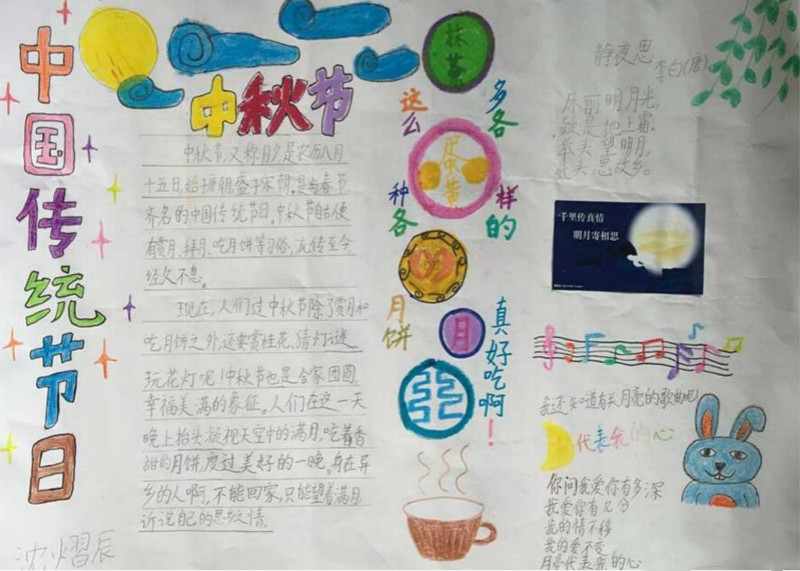 中国传统节日
中秋节
中秋节,又称月夕,是农历八月
十五日,始于唐朝,盛于宋朝,是与春节
齐名的中国传统节日。中秋节自古便
有赏月、拜月、吃月饼等习俗,流传至今
经久不息。
现在,人们过中秋节除了赏月和
吃月饼之外,还要赏桂花、猜灯谜、
玩花灯呢!中秋节也是合家团圆,
幸福美满的象征。人们在这一天
晚上抬头凝视天空中的满月,吃着香
甜的月饼,度过美好的一晚。身在异
乡的人啊,不能回家,只能望着满月
诉说自己的思纹情。
沈熠辰
抹茶
这么
多各
种各
样的
月饼
月
真好吃啊!
静夜思
李白(唐)
床前明月光,
疑是地上霜。
举头望明月,
低头思故乡。
千里传真情
明月寄相思
我还知道有关月亮的歌曲呢
代表我的心
你问我爱你有多深
我爱你有几分
我的情不移
我的爱不变
月亮代表我的心